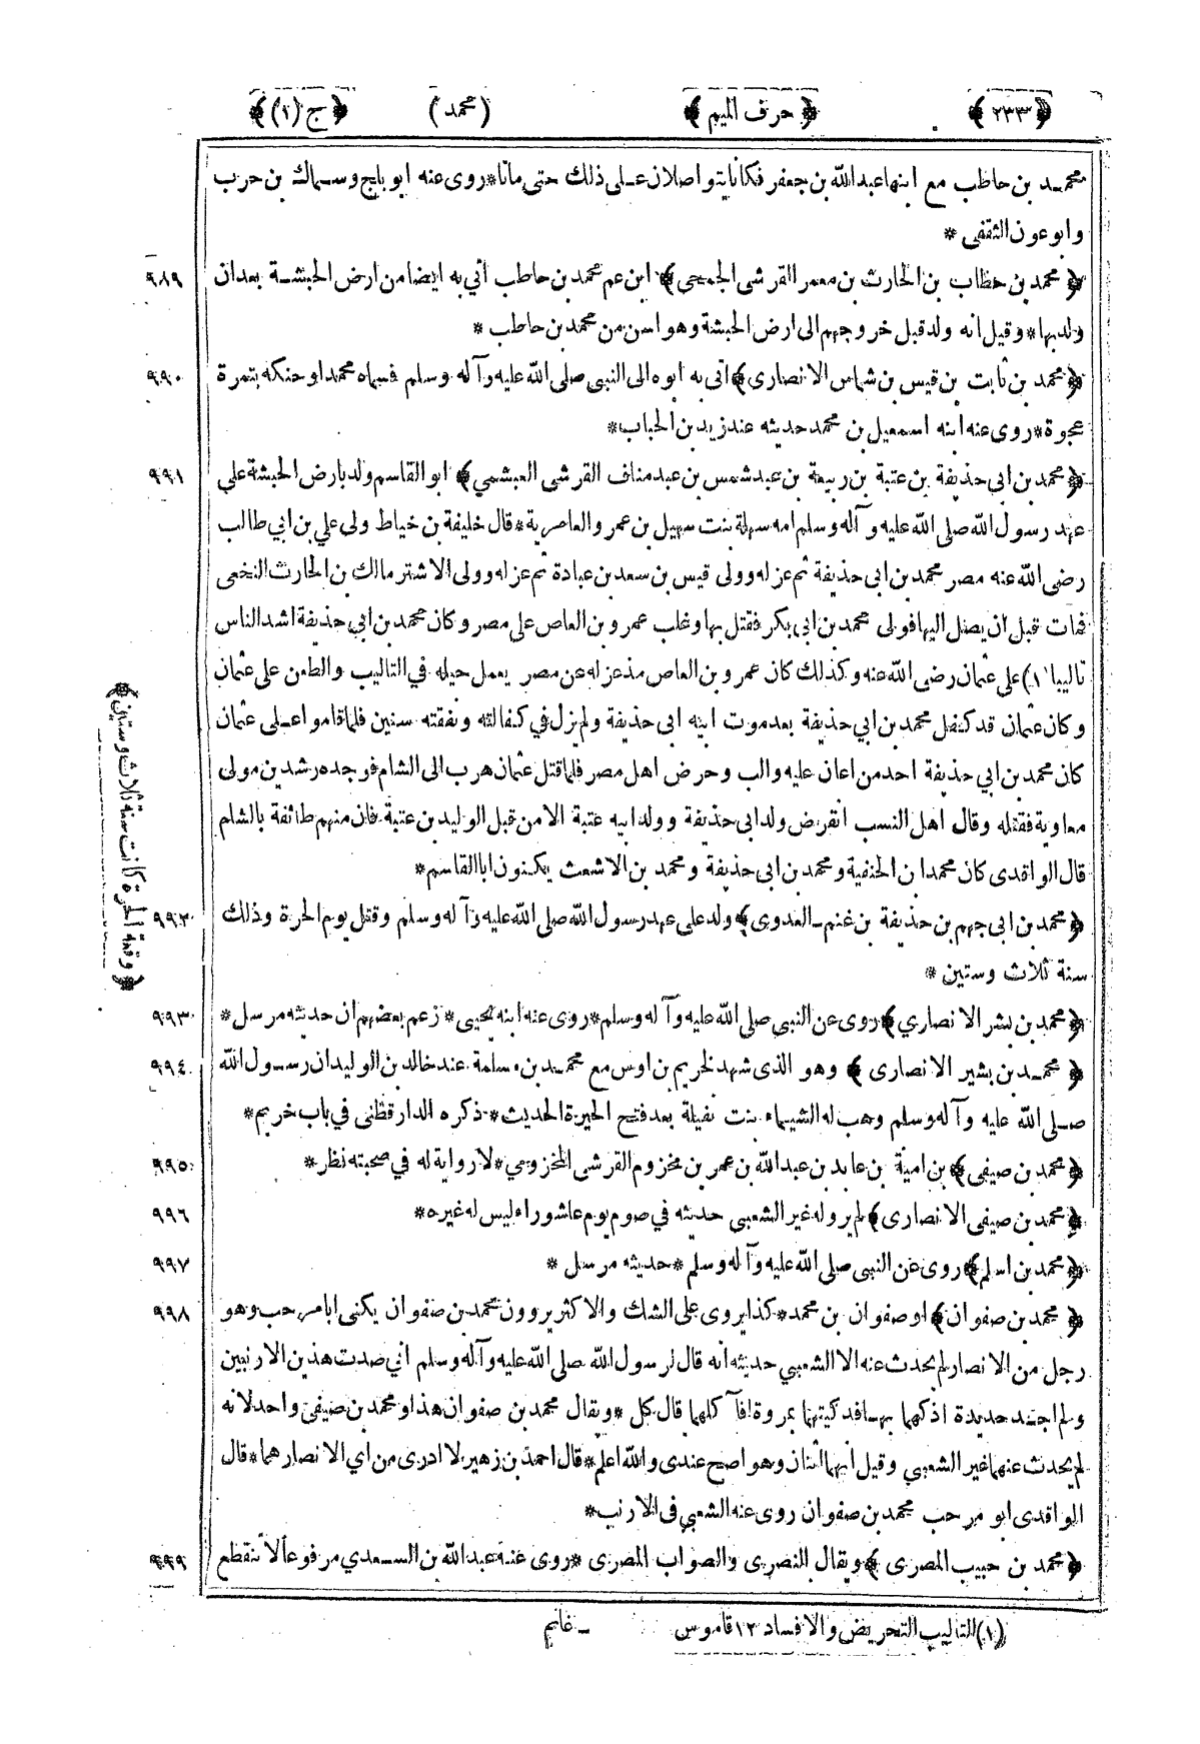 ﴿٢٣٣﴾ ﴿حرف الميم﴾ (محمد) ﴿ج (١)﴾
محمد بن حاطب مع ابنها عبد الله بن جعفر فكانا يتواصلان على ذلك حتى ماتا * روى عنه ابو بلج وسماك بن حرب
وابو عون الثقفى *
﴿محمد بن حطاب بن الحارث بن معمر القرشى الجمحي﴾ ابن عم محمد بن حاطب أتي به ايضا من ارض الحبشة بعد ان ٩٨٩
ولد بها * وقيل انه ولد قبل خروجهم الى ارض الحبشة وهو اسن من محمد بن حاطب *
﴿محمد بن ثابت بن قيس بن شماس الانصارى﴾ اتى به ابوه الى النبى صلى الله عليه وآله وسلم فسماه محمدا وحنكه بتمرة ٩٩٠
عجوة * روى عنه ابنه اسمعيل بن محمد حديثه عند زيد بن الحباب *
﴿محمد بن ابى حذيفة بن عتبة بن ربيعة بن عبد شمس بن عبد مناف القرشى العبشمي﴾ ابو القاسم ولد بارض الحبشة على ٩٩١
عهد رسول الله صلى الله عليه وآله وسلم امه سهلة بنت سهيل بن عمرو العامرية * قال خليفة بن خياط ولى علي بن ابي طالب
رضى الله عنه مصر محمد بن ابى حذيفة ثم عزله وولى قيس بن سعد بن عبادة ثم عزله وولى الاشتر مالك بن الحارث النخعى
فمات قبل ان يصل اليها فولى محمد بن ابى بكر فقتل بها وغلب عمرو بن العاص على مصر وكان محمد بن ابي حذيفة اشد الناس
تاليبا (١) على عثمان رضى الله عنه وكذلك كان عمرو بن العاص مذ عزله عن مصر يعمل حيله في التاليب والطعن على عثمان
وكان عثمان قد كفل محمد بن ابي حذيفة بعد موت ابيه ابى حذيفة ولم يزل في كفالته ونفقته سنين فلما قاموا على عثمان
كان محمد بن ابي حذيفة احد من اعان عليه والب وحرض اهل مصر فلما قتل عثمان هرب الى الشام فوجده رشدين مولى
معاوية فقتله وقال اهل النسب انقرض ولد ابى حذيفة وولد ابيه عتبة الا من قبل الوليد بن عتبة فان منهم طائفة بالشام
قال الواقدى كان محمد ابن الحنفية ومحمد بن ابى حذيفة ومحمد بن الاشعث يكنون ابا القاسم *
﴿محمد بن ابى جهم بن حذيفة بن غنم العدوى﴾ ولد على عهد رسول الله صلى الله عليه وآله وسلم وقتل يوم الحرة وذلك ٩٩٢
سنة ثلاث وستين *
﴿وقعة الحرة كانت سنة ثلاث وستين﴾
﴿محمد بن بشر الانصاري﴾ روى عن النبى صلى الله عليه وآله وسلم * روى عنه ابنه يحيى * زعم بعضهم ان حديثه مرسل * ٩٩٣
﴿محمد بن بشير الانصارى﴾ وهو الذى شهد لخريم بن اوس مع محمد بن مسلمة عند خالد بن الوليد ان رسول الله ٩٩٤
صلى الله عليه وآله وسلم وهب له الشيماء بنت نفيلة بعد فتح الحيرة الحديث * ذكره الدار قطنى في باب خريم *
﴿محمد بن صيفى﴾ بن امية بن عابد بن عبد الله بن عمر بن مخزوم القرشى المخزومي * لا رواية له في صحبته نظر * ٩٩٥
﴿محمد بن صيفى الانصارى﴾ لم يرو له غير الشعبى حديثه في صوم يوم عاشوراء ليس له غيره * ٩٩٦
﴿محمد بن اسلم﴾ روى عن النبى صلى الله عليه وآله وسلم * حديثه مرسل * ٩٩٧
﴿محمد بن صفوان﴾ او صفوان بن محمد * كذا يروى على الشك والاكثر يروون محمد بن صفوان يكنى ابا مرحب وهو ٩٩٨
رجل من الانصار لم يحدث عنه الا الشعبي حديثه أنه قال لرسول الله صلى الله عليه وآله وسلم أني صدت هذين الارنبين
ولم اجد حديدة اذكهما بها فذكيتهما بمروة افآكلهما قال كل * ويقال محمد بن صفوان هذا ومحمد بن صيفى واحد لانه
لم يحدث عنهما غير الشعبي وقيل أنهما اثنان وهو اصح عندى والله اعلم * قال احمد بن زهير لا ادرى من اي الانصار هما * قال
الواقدى ابو مرحب محمد بن صفوان روى عنه الشعبي فى الارنب *
﴿محمد بن حبيب المصرى﴾ ويقال النصرى والصواب المصرى * روى عنه عبد الله بن السعدي مرفوعا لا تنقطع ٩٩٩
(١) التاليب التحريض والافساد ١٢ قاموس - غانم